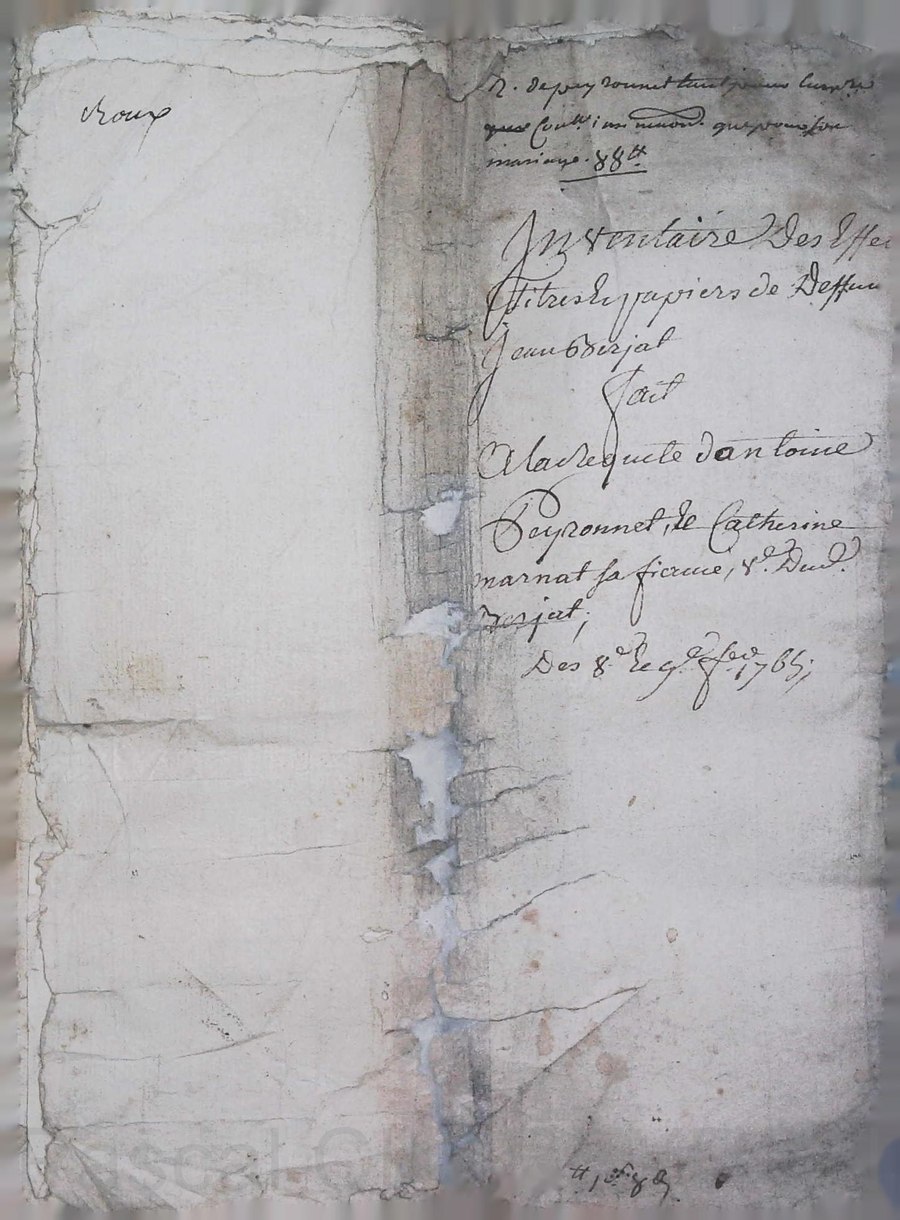 Roux
R. de peyronnet tant pour
que pour son
mariage. 88 tt
Inventaire Des Effe
Titres Et papiers de Deffun
Jean Borjat
fait
A la Requete dantoine
Peyronnet, Et Catherine
marnat sa femme, v.e Dud.
Borjat;
Des 8.e Et 9.e fev. 1765;